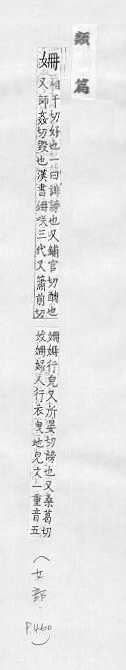 類篇
姍 相干切好也一曰誹謗也又鋪官切醜也
又師姦切毀也漢書姍笑三代又蕭前切
姍姍行皃又所晏切謗也又桑葛切
媻姍婦人行衣曳地皃文一重音五
(女部. P.460)